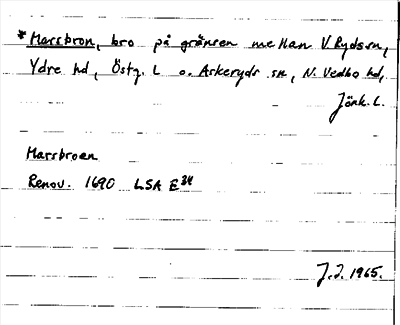 *Marsbron, bro på gränsen mellan V Ryds sn,
Ydre hd, Östg. L o. Askeryds sn, N. Vedbo hd,
Jönk. L.
Marsbroen
Renov. 1690 LSA E34
J.J. 1965.